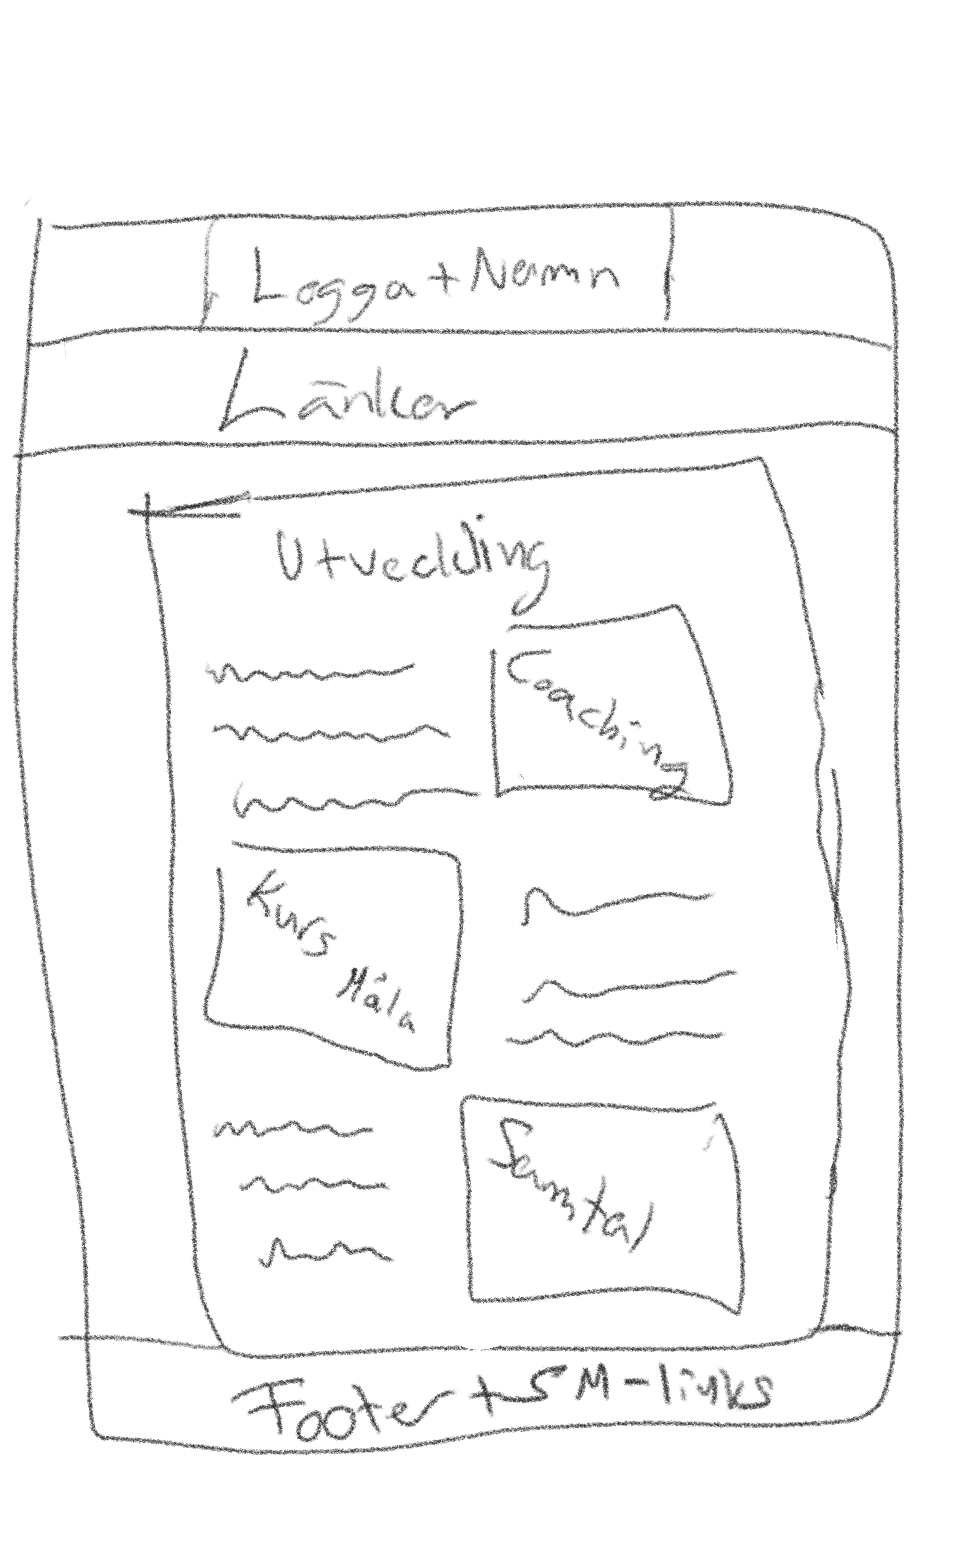 Logga + Namn
Länkar
Utveckling
Coaching
Kurs
Måla
Samtal
Footer + SM-links